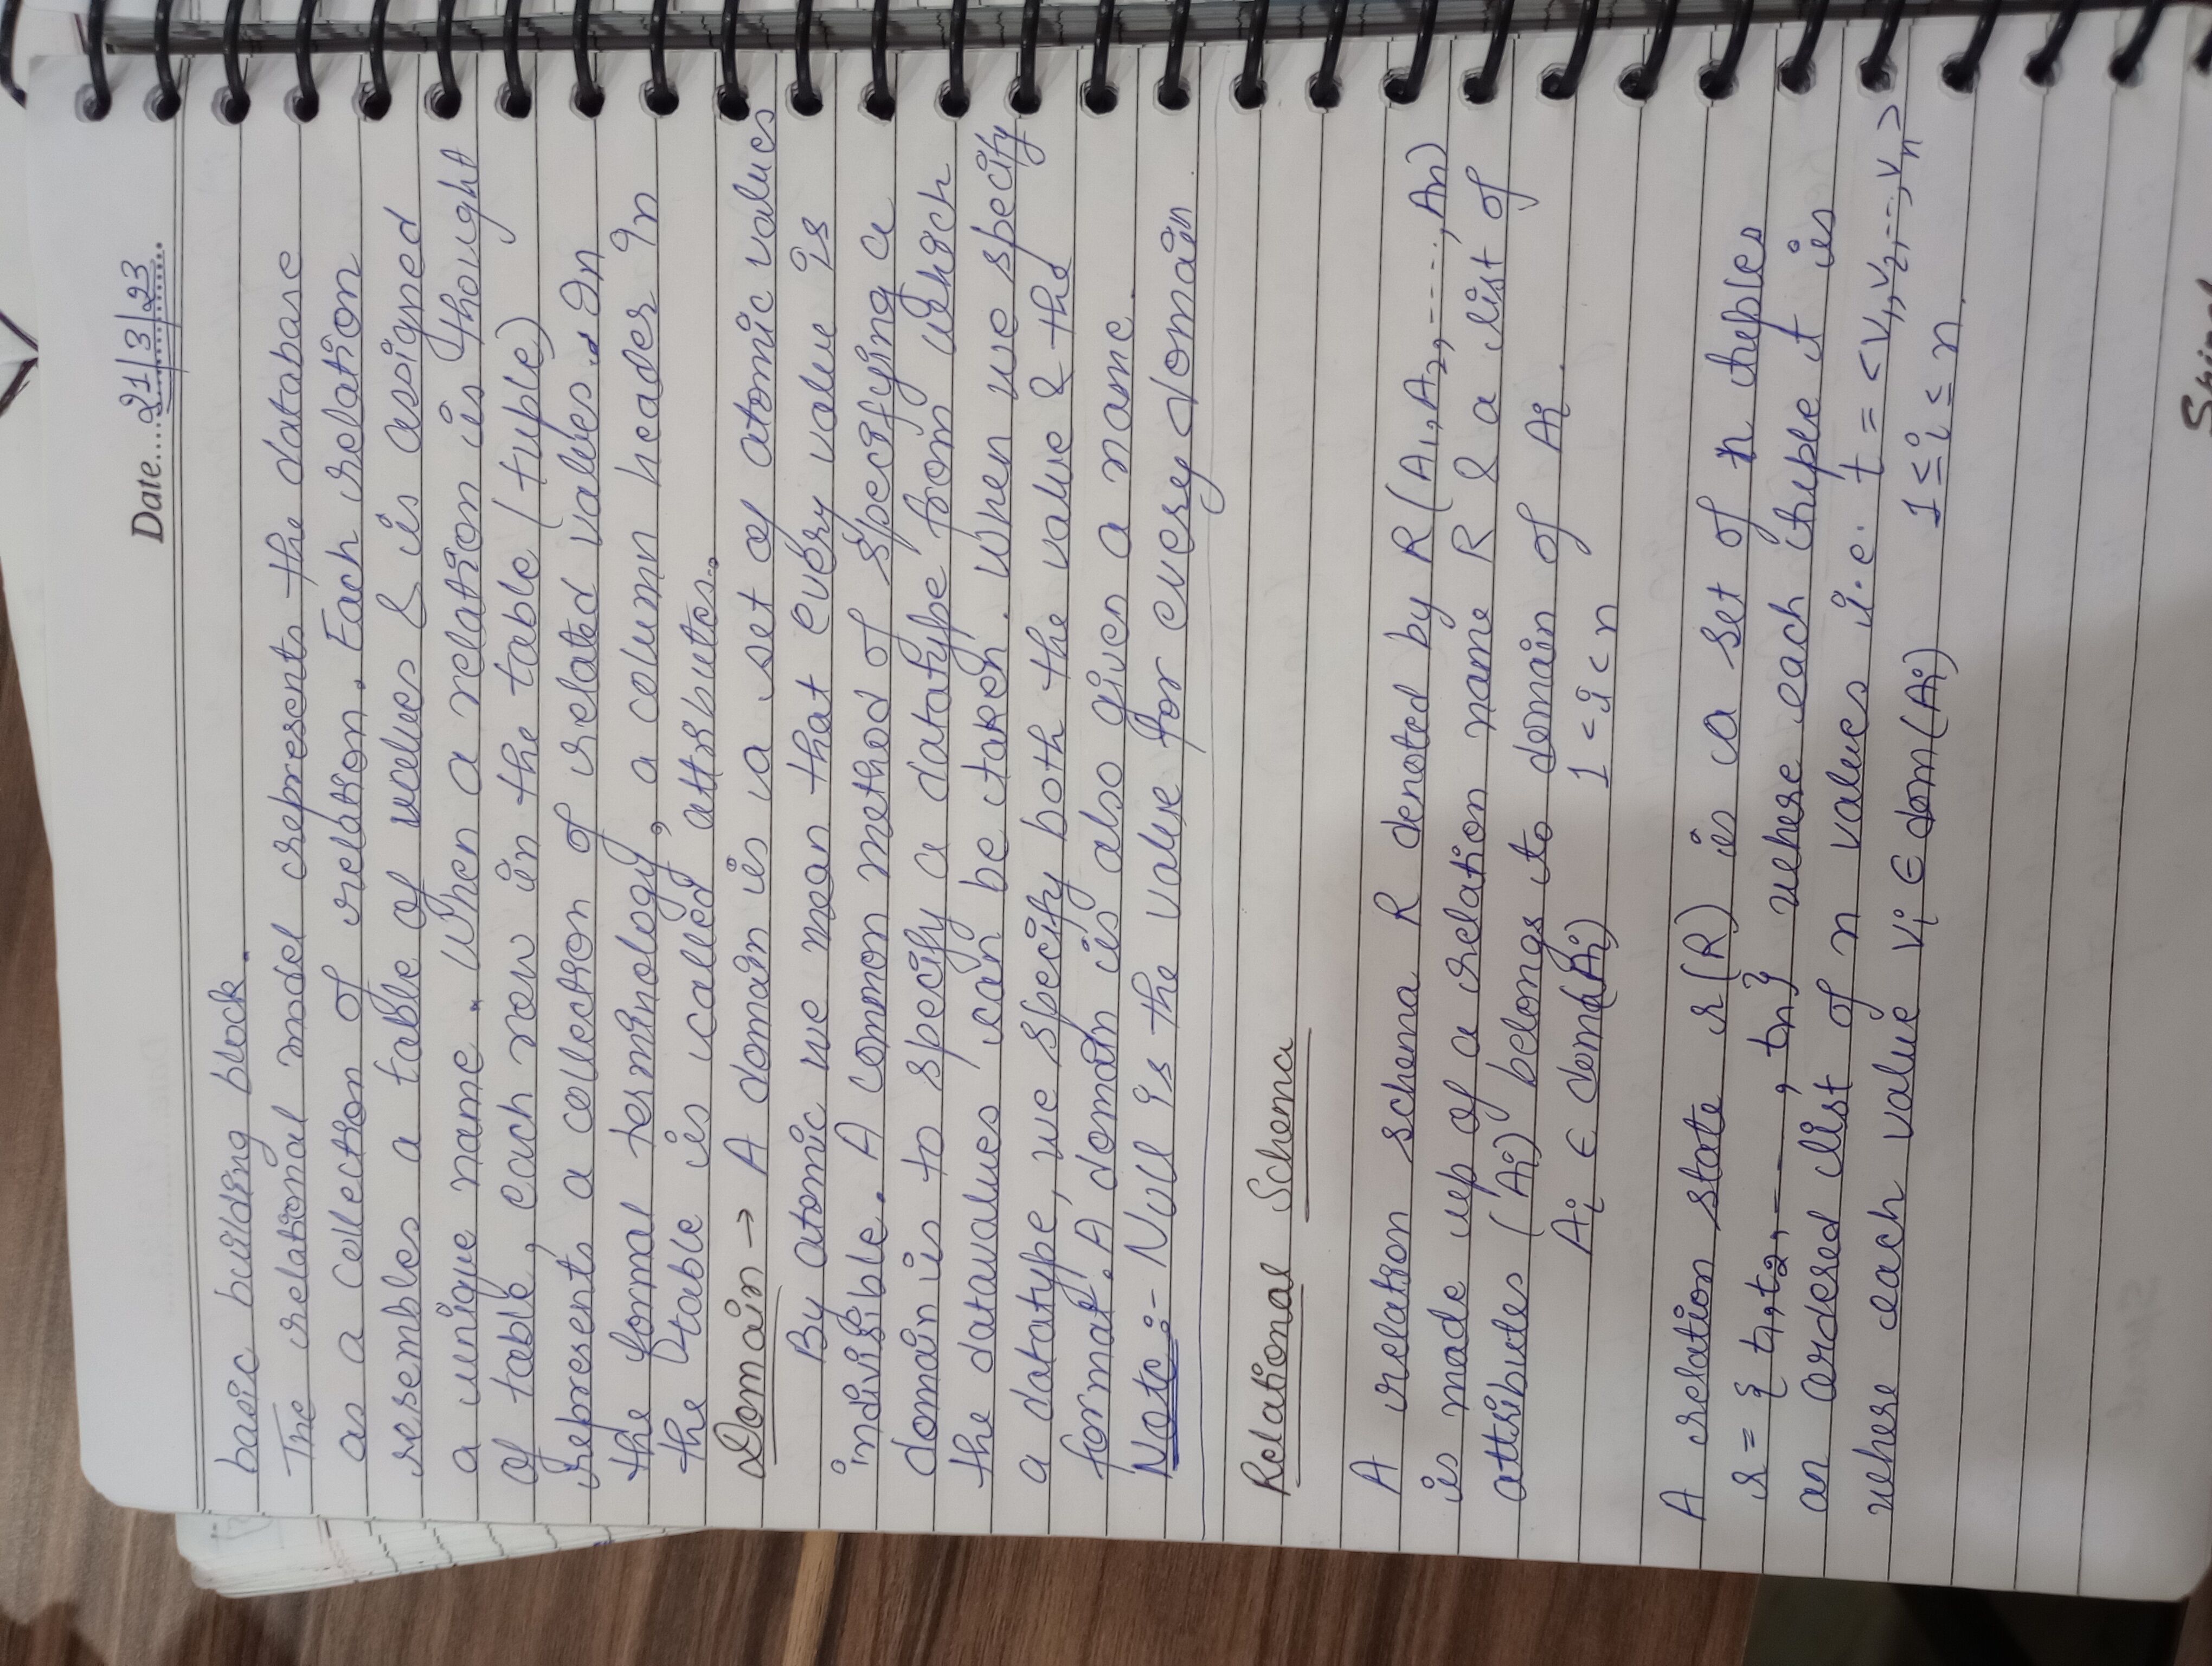 Date.... 21/3/23
basic building block.
The relational model represents the database
as a collection of relation. Each relation
resembles a table of values & is assigned
a unique name. When a relation is thought
of table, each row in the table (tuple)
represents a collection of related values. In
the formal terminology, a column header in
the table is called attributes.
Domain → A domain is a set of atomic values
By atomic we mean that every value is
indivisible. A common method of specifying a
domain is to specify a datatype from which
the datavalues can be taken. When we specify
a datatype, we specify both the value & the
format. A domain is also given a name.
Note :- Null is the value for every domain.
Relational Schema
A relation schema R denoted by R(A1, A2, ----, An)
is made up of a relation name R & a list of
attributes (Ai) belongs to domain of Ai.
Ai ∈ dom(Ai) 1 < i < n
A relation state r(R) is a set of n tuples
r = { t1, t2, ---- , tn} where each tuple t is
an ordered list of n values i.e. t = <V1, V2, --, Vn>
where each value Vi ∈ dom(Ai) 1 ≤ i ≤ n.